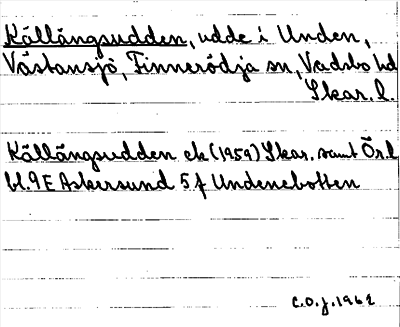 Källängsudden, udde i Unden,
Västansjö, Finnerödja sn, Vadsbo hd
Skar. l.
Källängsudden ek (1959) Skar. samt Ör. l
bl. 9 E Askersund 5 f Undenebotten
C.O.J. 1962